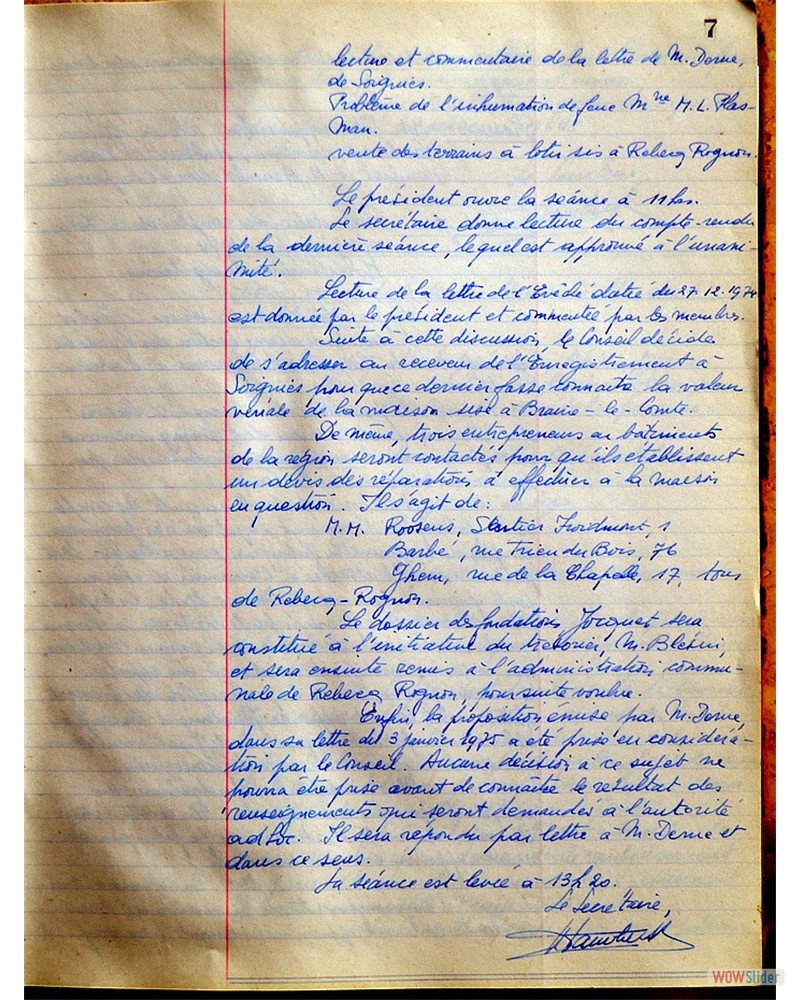 7
lecture et commentaire de la lettre de M. Derue,
de Soignies.
Problème de l'inhumation de feue Mme M. L. Plas-
man.
vente des terrains à lotir sis à Rebecq Rognon.
Le président ouvre la séance à 11 hs.
Le secrétaire donne lecture du compte-rendu
de la dernière séance, lequel est approuvé à l'unani-
mité.
Lecture de la lettre de l'Evêché datée du 27.12.1974
est donnée par le président et commentée par les membres.
Suite à cette discussion, le Conseil décide
de s'adresser au receveur de l'Enregistrement à
Soignies pour que ce dernier fasse connaître la valeur
vénale de la maison sise à Braine-le-Comte.
De même, trois entrepreneurs en bâtiments
de la région seront contactés pour qu'ils établissent
un devis des réparations à effectuer à la maison
en question. Il s'agit de :
M.M. Roosens, Froidmont, 1
Barbé, rue Trieu du Bois, 76
Ghem, rue de la Chapelle, 17, tous
de Rebecq-Rognon.
Le dossier des fondations Jacquet sera
constitué à l'initiative du trésorier, M.
et sera ensuite remis à l'administration commu-
nale de Rebecq Rognon, pour suite voulue.
Enfin, la proposition émise par M. Derue,
dans sa lettre du 3 janvier 1975 a été prise en considéra-
tion par le Conseil. Aucune décision à ce sujet ne
pourra être prise avant de connaître le résultat des
renseignements qui seront demandés à l'autorité
ad hoc. Il sera répondu par lettre à M. Derue et
dans ce sens.
La séance est levée à 13h20.
Le Secrétaire,
WOWSlider